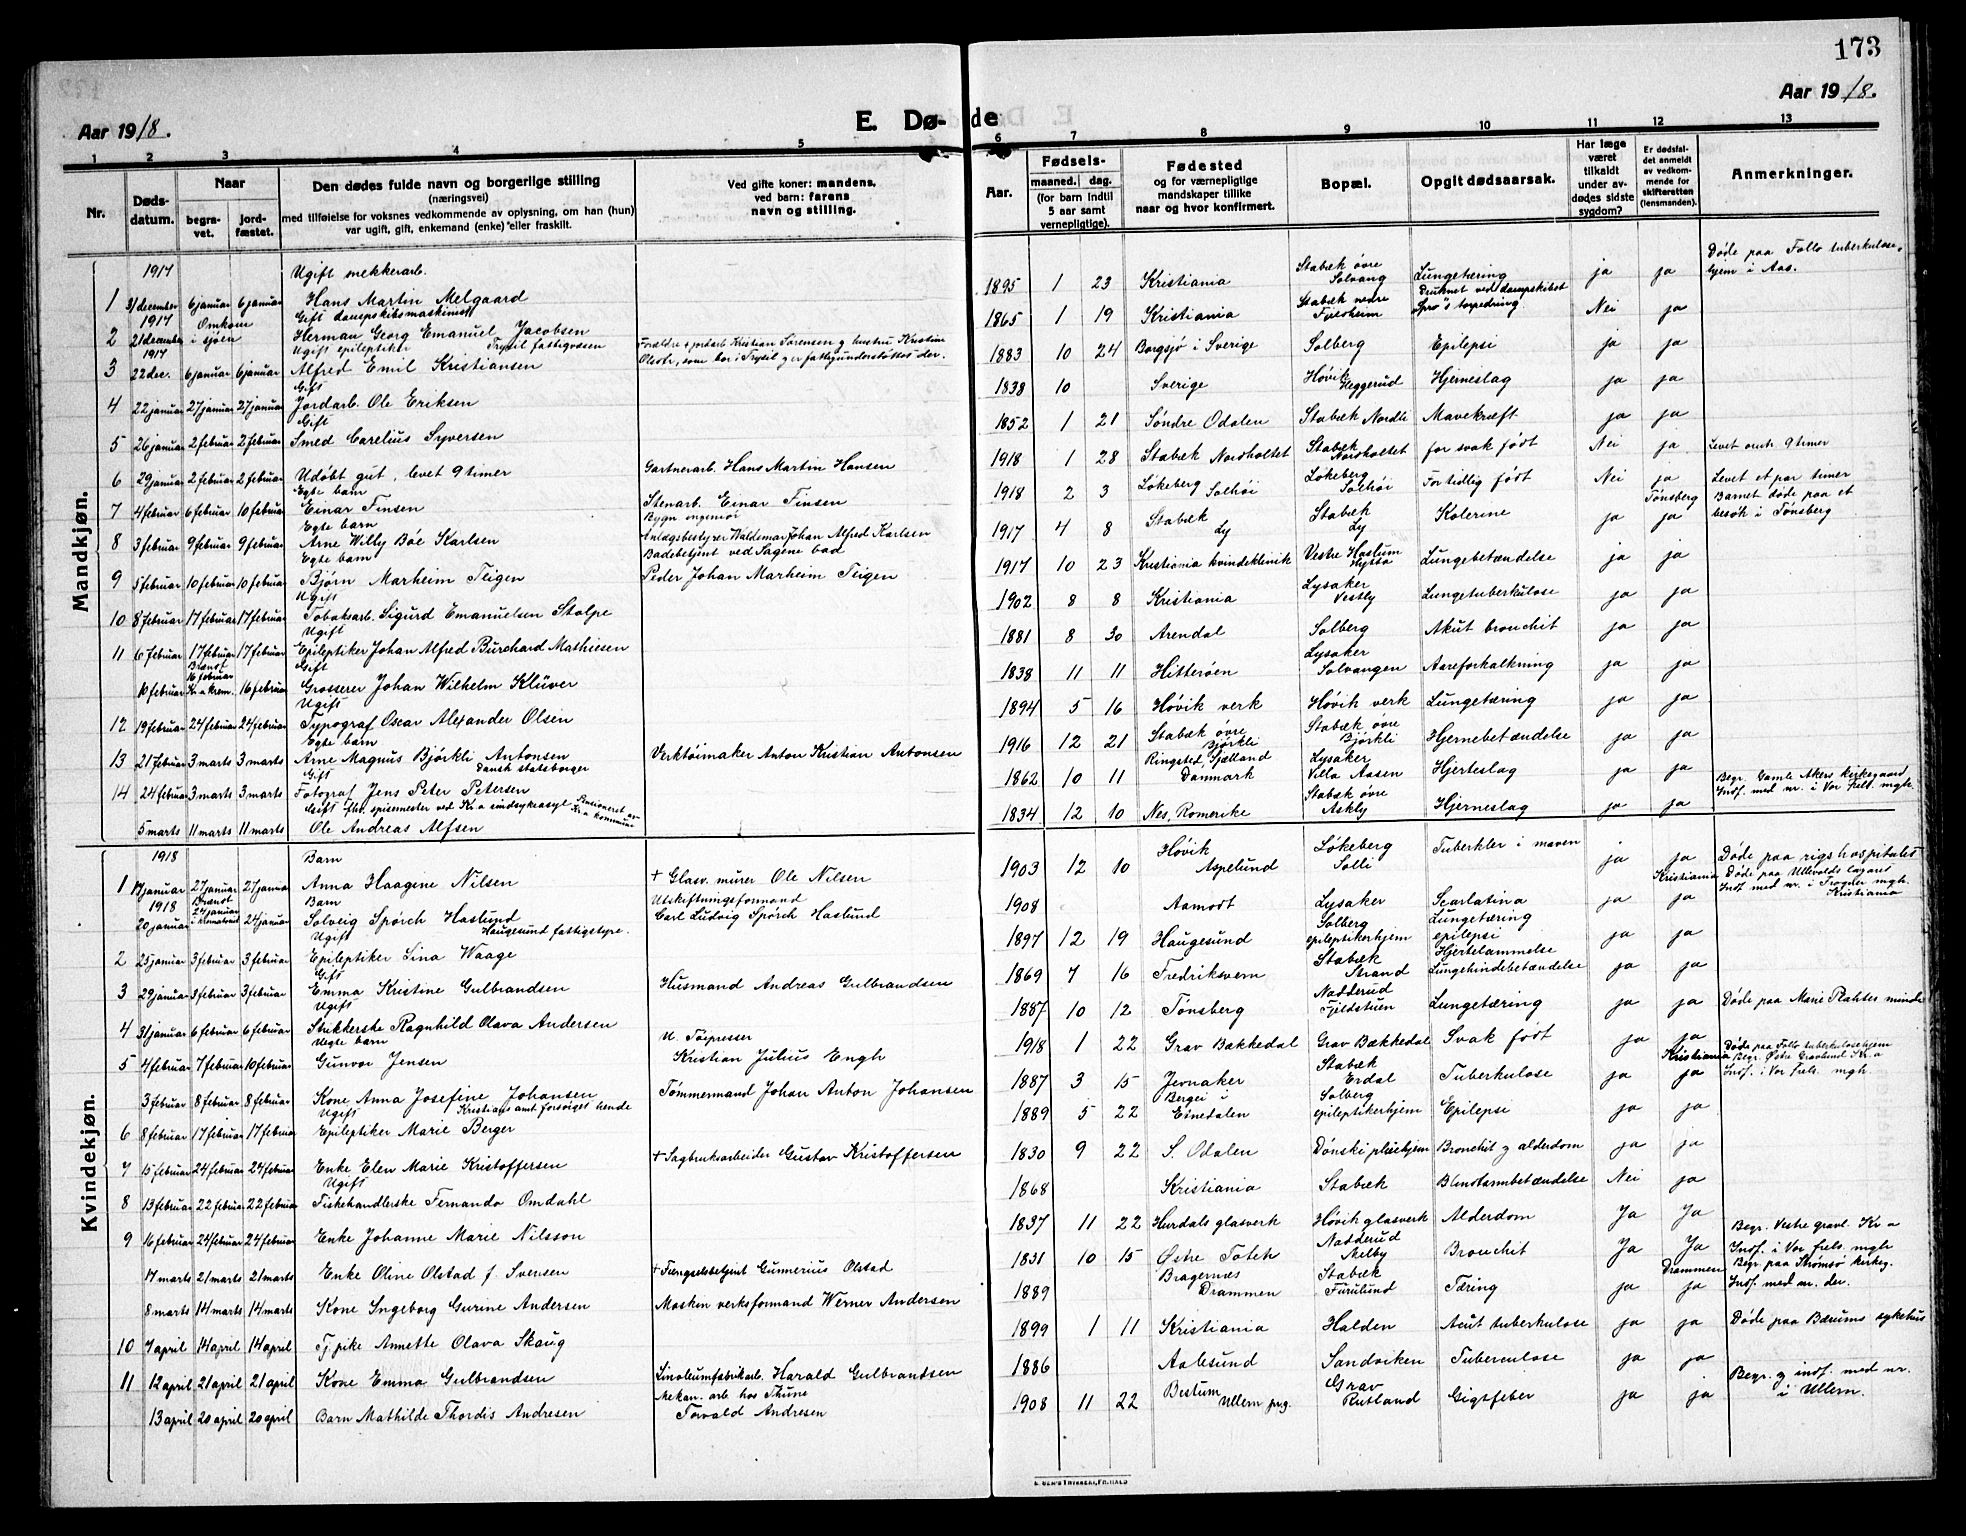 173
Aar 1918.
E. Dø-
de
Aar 1918.
1 2 3 4 5 6 7 8 9 10 11 12 13
Nr.
Døds-
datum.
Naar
begra-
vet.
jord-
fæstet.
Den dødes fulde navn og borgerlige stilling
(næringsvei)
med tilføielse for voksnes vedkommende av oplysning, om han (hun)
var ugift, gift, enkemand (enke) eller fraskilt.
Ved gifte koner: mandens,
ved barn: farens
navn og stilling.
Aar.
Fødsels-
maaned. dag.
(for barn indtil
5 aar samt
vernepligtige).
Fødested
og for værnepligtige
mandskaper tillike
naar og hvor konfirmert.
Bopæl.
Opgit dødsaarsak.
Har læge
været
tilkaldt
under av-
dødes sidste
sygdom?
Er dødsfal-
det anmeldt
av vedkom-
mende for
skifteretten
(lensmanden).
Anmerkninger.
Mandkjøn.
1917 Ugift mekkerarb.
1 31 december 6 januar 6 januar Hans Martin Melgaard 1895 1 23 Kristiania Stabæk øvre Solvang Lungetæring ja ja Døde paa Follo tuberkulose-
hjem i Aas.
1917 Omkom Gift dampskibsmaskinist
2 21 december i sjøen Herman Georg Emanuel Jacobsen 1865 1 19 Kristiania Stabæk nedre Druknet ved dampskibet "Spro"s torpedning Nei ja
1917 Ugift epileptiker Trysil fattigvæsen
3 22 dec. 6 januar 6 januar Alfred Emil Kristiansen Forældre jordarb Kristian Sørensen og hustru Kristine Olsdtr, som bor i Trysil g er fattigunderstøttet der. 1883 10 24 Borgsjø i Sverige Solberg Epilepsi ja ja
Gift
4 22 januar 27 januar 27 januar Jordarb. Ole Eriksen 1838 10 Sverige Høvik Heggerud Hjerneslag ja ja
Gift
5 26 januar 2 februar 2 februar Smed Carelius Syversen 1852 1 21 Søndre Odalen Stabæk Nordli Mavekræft ja ja
6 29 januar 2 februar 2 februar Udøbt gut, levet 9 timer Gartnerarb. Hans Martin Hansen 1918 1 28 Stabæk Nordholtet Stabæk Nordholtet for svak født Nei ja Levet omtr. 9 timer
Egte barn
7 4 februar 6 februar 10 februar Einar Finsen Stenarb. Einar Finsen 1918 2 3 Løkeberg Solhöi Løkeberg Solhöi For tidlig født Nei ja Levet et par timer
Egte barn Bygn ingeniør
8 3 februar 9 februar 9 februar Arne Willy Bøe Karlsen Anlægsbestyrer Waldemar Johan Alfred Karlsen 1917 4 8 Stabæk Ly Stabæk Ly Kolerine ja Tønsberg ja Barnet døde paa et
besøk i Tønsberg
Egte barn Badebetjent ved Sagene bad
9 5 februar 10 februar 10 februar Bjørn Marheim Teigen Peder Johan Marheim Teigen 1917 10 23 Kristiania kvindeklinik Vestre Haslum Hytta Lungebetændelse ja ja
Ugift
10 8 februar 17 februar 17 februar Tobaksarb. Sigurd Emanuelsen Stolpe 1902 8 8 Kristiania Lysaker Vestly Lungetuberkulose ja ja
Ugift
11 6 februar 17 februar 17 februar Epileptiker Johan Alfred Burchard Mathiesen 1881 8 30 Arendal Solberg Akut bronchit ja ja
Brændt 16 februar Gift
10 februar Kr.a krem. 16 februar Grosserer Johan Wilhelm Klüver 1838 11 11 Hitterøen Lysaker Solvangen Aareforkalkning ja ja
Ugift
12 19 februar 24 februar 24 februar Typograf Oscar Alexander Olsen 1894 5 16 Høvik verk Høvik verk Lungetæring ja ja
Egte barn
13 21 februar 3 marts 3 marts Arne Magnus Bjørkli Antonsen Verktöimaker Anton Kristian Antonsen 1916 12 21 Stabæk øvre Bjørkli Stabæk øvre Bjørkli Hjernebetændelse ja ja
Gift Dansk statsborger
14 24 februar 3 marts 3 marts Fotograf Jens Peter Petersen 1862 10 11 Ringsted Sjælland Danmark Lysaker Villa Aasen Hjerteslag ja ja
Gift fhv. spisemester ved Kr.a sindsykeasyl Pensioneret av Kr.a kommune
5 marts 11 marts 11 marts Ole Andreas Alfsen 1834 12 10 Nes, Romerike Stabæk øvre Askly Hjerneslag ja ja Begr. Gamle Akers kirkegaard
Indf. med nr. i Vor frels. mgh.
Kvindekjøn.
1918 Barn
1 17 januar 27 januar 27 januar Anna Haagine Nilsen + Glasv. murer Ole Nilsen 1903 12 10 Høvik Aspelund Løkeberg Solli Tuberkler i maven ja ja Døde paa rigshospitalet
1918 Brændt 24 januar Barn Utskiftningsformand
20 januar 24 januar Solveig Spørch Haslund Carl Ludvig Spørch Haslund 1908 Aamodt Lysaker Scarlatina ja Kristiania ja Døde paa Ullevolds lazaret
Indf med nr. i Frogner mgh.
Kristiania
Ugift Haugesund fattigstyre.
2 25 januar 3 februar 3 februar Epileptiker Sina Waage 1897 12 19 Haugesund Solberg epileptikerhjem Lungetæring epilepsi ja ja
Gift
3 29 januar 3 februar 3 februar Emma Kristine Gulbrandsen Husmand Andreas Gulbrandsen 1869 7 16 Fredriksvern Stabæk Strand Hjertelammelse Lungehindebetændelse ja ja
Ugift
4 31 januar 6 februar 6 februar Strikkerske Ragnhild Olava Andersen 1887 10 12 Tønsberg Nadderud Fjeldstuen Lungetæring ja ja Døde paa Marie Plahtes minde
Uegte barn
5 4 februar 7 februar 10 februar Gunvor Jensen Kristian Julius Engh 1918 1 22 Grav Bækkedal Grav Bækkedal Svak født ja ja
3 februar 8 februar 8 februar Kone Anna Josefine Johansen Tømmermand Johan Anton Johansen 1887 3 15 Jevnaker Stabæk Erdal Tuberkulose ja Kristiania ja Døde paa Follo tuberkulosehjem
Begr. Østre Gravlund Kr.a
Indf. i Vor frels. mgh
Ugift Kristians amt forsørget hende
6 8 februar 17 februar 17 februar Epileptiker Marie Berger 1889 5 22 Etnedalen Solberg epileptikerhjem Epilepsi ja ja
7 15 februar 24 februar 24 februar Enke Elen Marie Kristoffersen + Sagbruksarbeider Gustav Kristoffersen 1830 9 22 S. Odalen Dønski pleiehjem Bronchit g alderdom ja ja
Ugift
8 13 februar 22 februar 22 februar Fiskehandlerske Fernanda Omdahl 1868 Kristiania Stabæk Blindtarmbetændelse Nei ja
9 16 februar 24 februar 24 februar Enke Johanne Marie Nilsson 1837 11 22 Hurdals glasverk Høvik glasverk Alderdom Ja Ja
17 marts 21 marts 21 marts Enke Oline Olstad f. Svensen + Fængselsbetjent Gunnerius Olstad 1831 10 15 Østre Toten Nadderud Bronchit Ja Ja Begr. Vestre gravl. Kr.a
Indf. i Vor frels. mgh
8 marts 14 marts 14 marts Kone Ingeborg Gurine Andersen Maskin verksformand Werner Andersen 1889 Bragernæs Drammen Stabæk Furulund Tæring ja Drammen ja Begr. paa Strømsø kirkeg.
Indf. med nr. der.
10 7 april 14 april 14 april Tj.pike Annette Olava Skaug 1899 1 11 Kristiania Halden Acut tuberkulose ja ja Døde paa Bærums sykehus
11 12 april 21 april 21 april Kone Emma Gulbrandsen Linoleumfabrikarb. Harald Gulbrandsen 1886 Aalesund Sandviken Tuberculose ja ja
Mekan. arb hos Thune
13 april 20 april 20 april Barn Mathilde Thordis Andresen Torvald Andresen 1908 11 22 Bestum Ullern prg. Grav Rutland Gigtfeber ja ja Begr. g indf. med nr.
i Ullern.